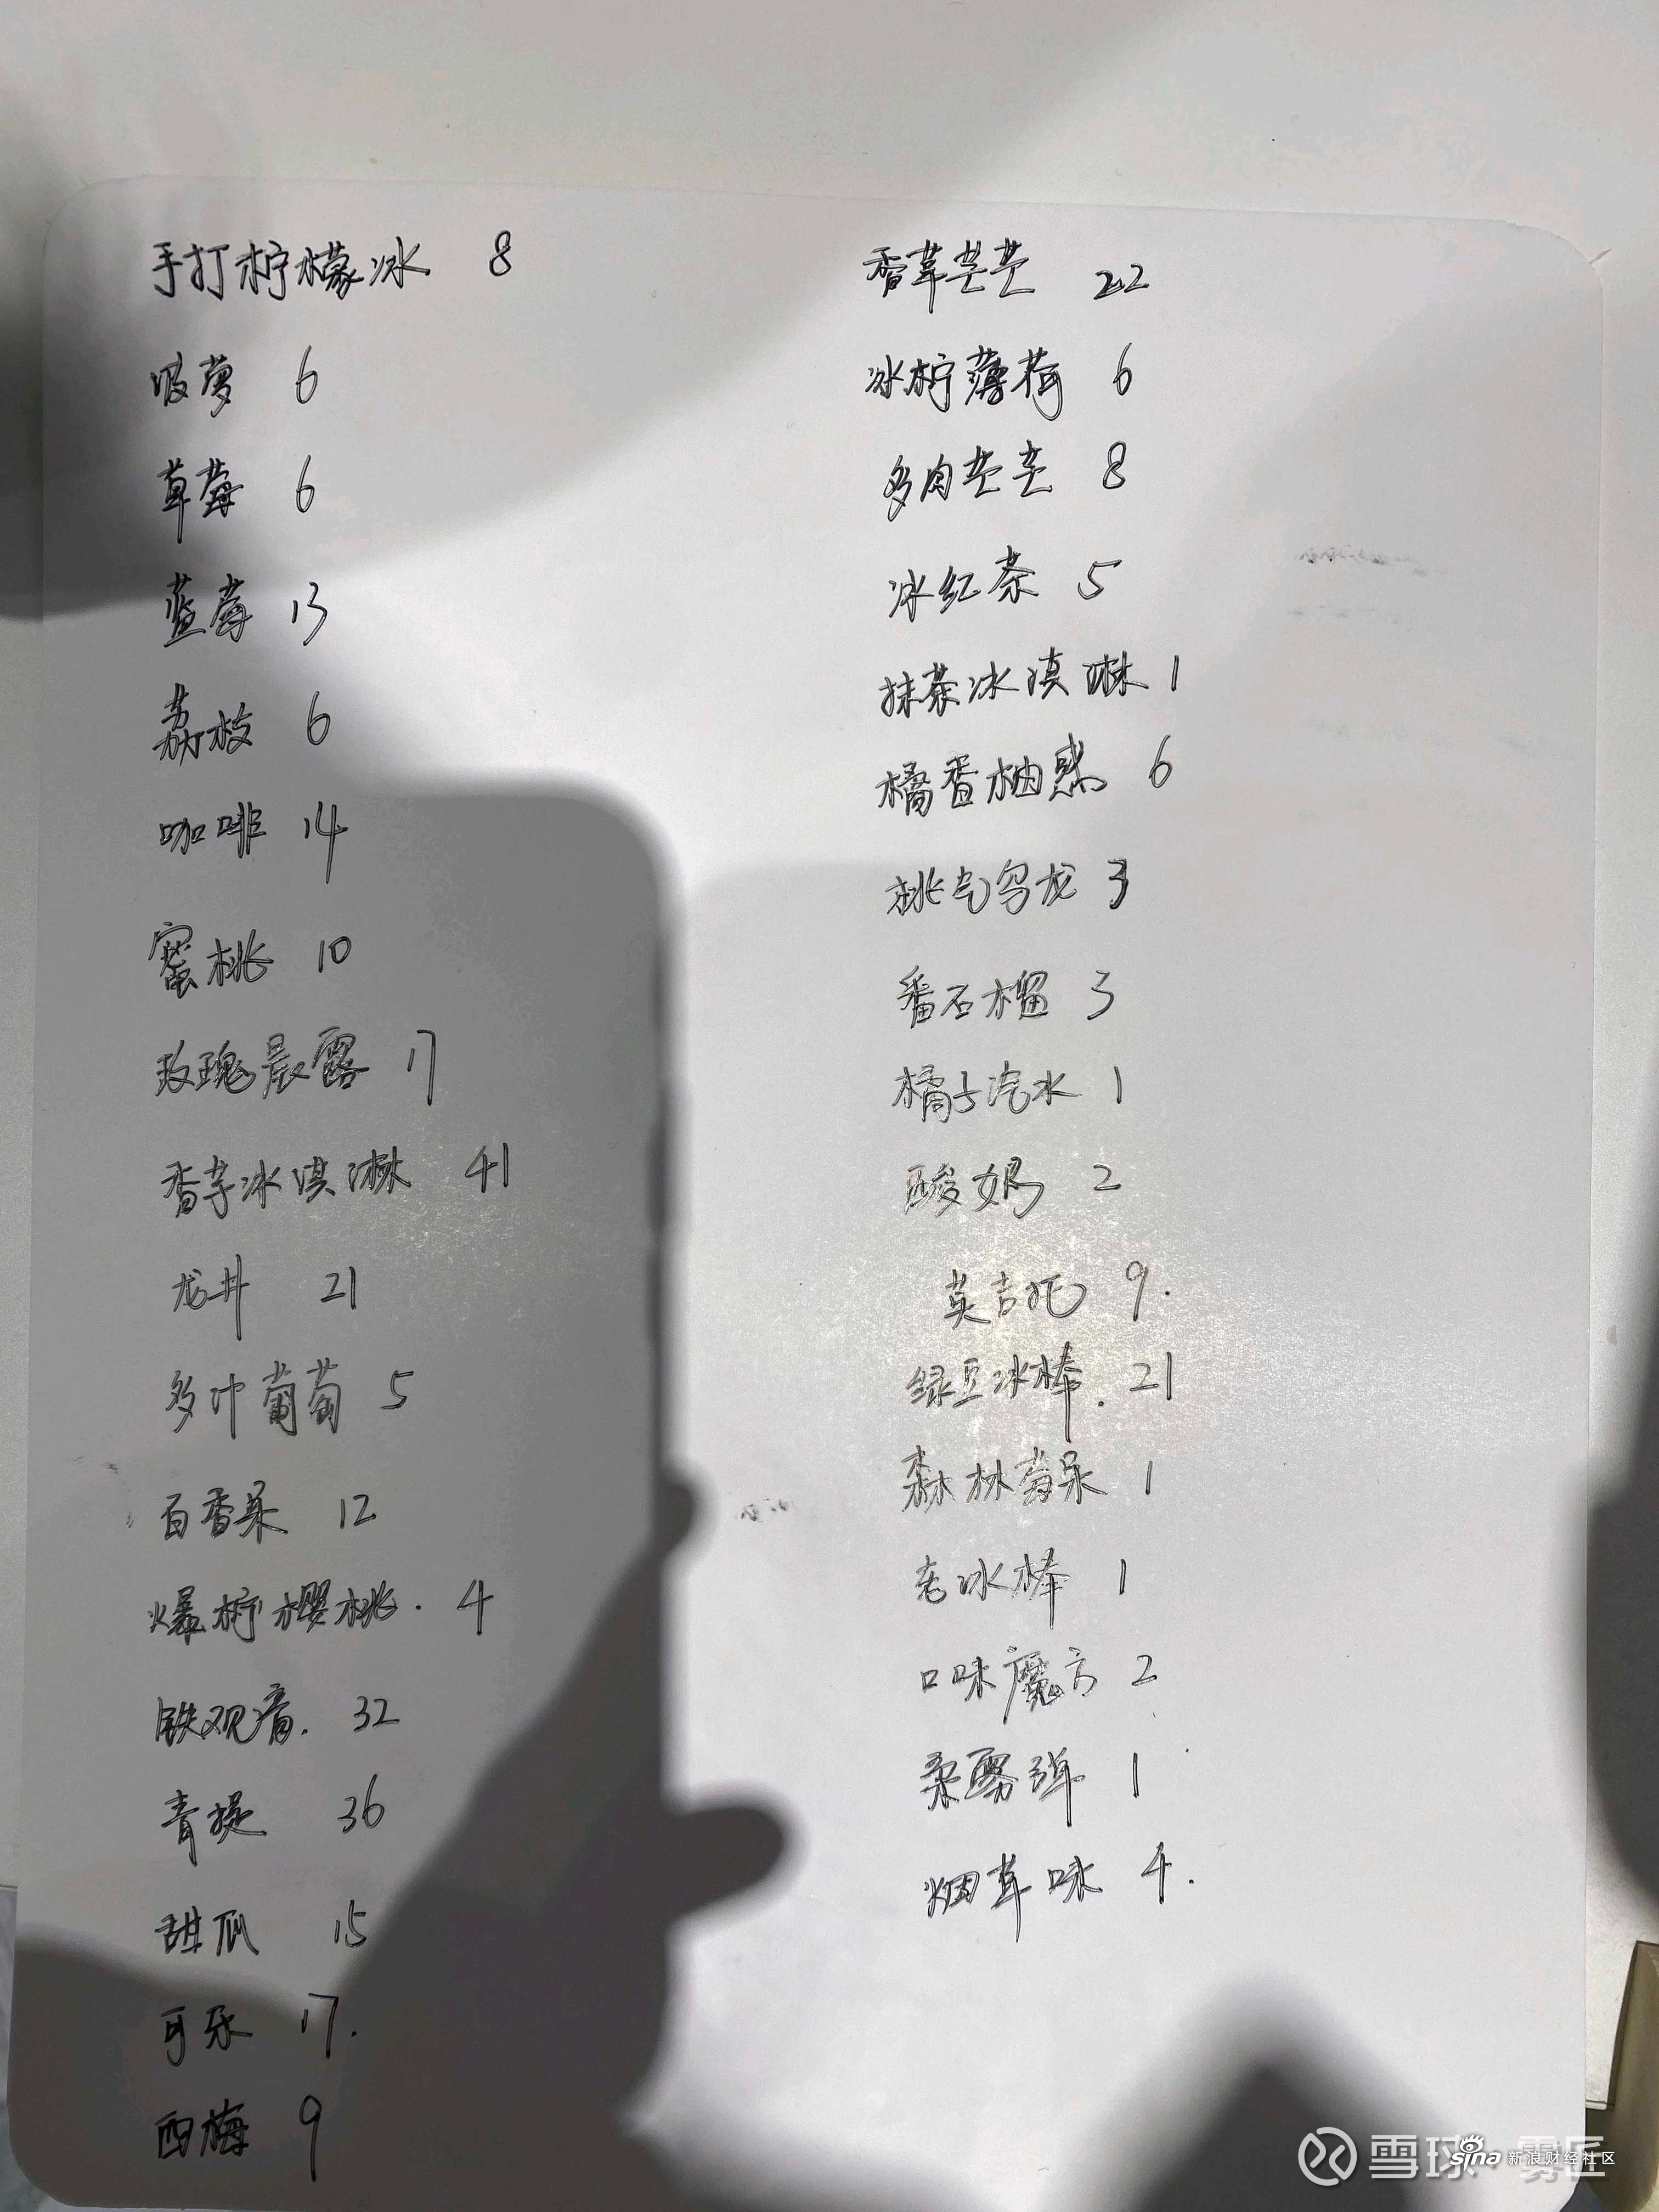 手打柠檬冰 8
菠萝 6
草莓 6
蓝莓 13
荔枝 6
咖啡 14
蜜桃 10
玫瑰晨露 17
香芋冰淇淋 41
龙井 21
多汁葡萄 5
百香果 12
爆柠樱桃. 4
铁观音. 32
青提 36
甜瓜 15
可乐 17.
西梅 9
香草芒芒 22
冰柠薄荷 6
多肉芒芒 8
冰红茶 5
抹茶冰淇淋 1
橘香柚惑 6
桃气乌龙 3
番石榴 3
橘子汽水 1
酸奶 2
莫吉托 9.
绿豆冰棒. 21
森林莓果 1
老冰棒 1
口味魔方 2
柔雾弹 1
烟草味 4.
雪球 雾匠
sina 新浪财经社区